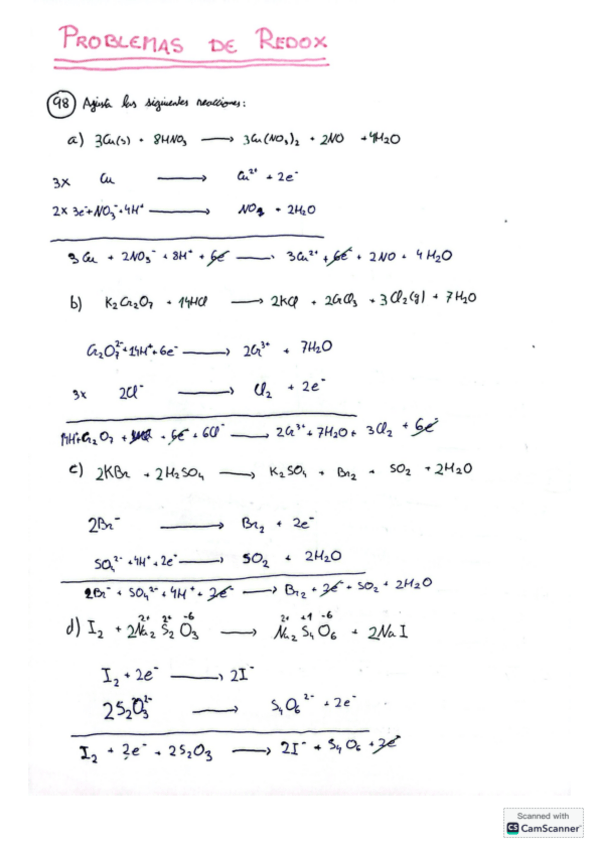 PROBLEMAS DE REDOX
98 Ajusta las siguientes reacciones:
a) 3Cu(s) + 8HNO₃ → 3Cu(NO₃)₂ + 2NO + 4H₂O
3x Cu → Cu²⁺ + 2e⁻
2x 3e⁻ + NO₃⁻ + 4H⁺ → NO + 2H₂O
3Cu + 2NO₃⁻ + 8H⁺ + 6e⁻ → 3Cu²⁺ + 6e⁻ + 2NO + 4H₂O
b) K₂Cr₂O₇ + 14HCl → 2KCl + 2CrCl₃ + 3Cl₂(g) + 7H₂O
Cr₂O₇²⁻ + 14H⁺ + 6e⁻ → 2Cr³⁺ + 7H₂O
3x 2Cl⁻ → Cl₂ + 2e⁻
14H⁺ + Cr₂O₇ + 6e⁻ + 6Cl⁻ → 2Cr³⁺ + 7H₂O + 3Cl₂ + 6e⁻
c) 2KBr + 2H₂SO₄ → K₂SO₄ + Br₂ + SO₂ + 2H₂O
2Br⁻ → Br₂ + 2e⁻
SO₄²⁻ + 4H⁺ + 2e⁻ → SO₂ + 2H₂O
2Br⁻ + SO₄²⁻ + 4H⁺ + 2e⁻ → Br₂ + 2e⁻ + SO₂ + 2H₂O
2+ 2+ -6 2+ +1 -6
d) I₂ + 2Na₂S₂O₃ → Na₂S₄O₆ + 2NaI
I₂ + 2e⁻ → 2I⁻
2S₂O₃²⁻ → S₄O₆²⁻ + 2e⁻
I₂ + 2e⁻ + 2S₂O₃ → 2I⁻ + S₄O₆ + 2e⁻
Scanned with
CS CamScanner